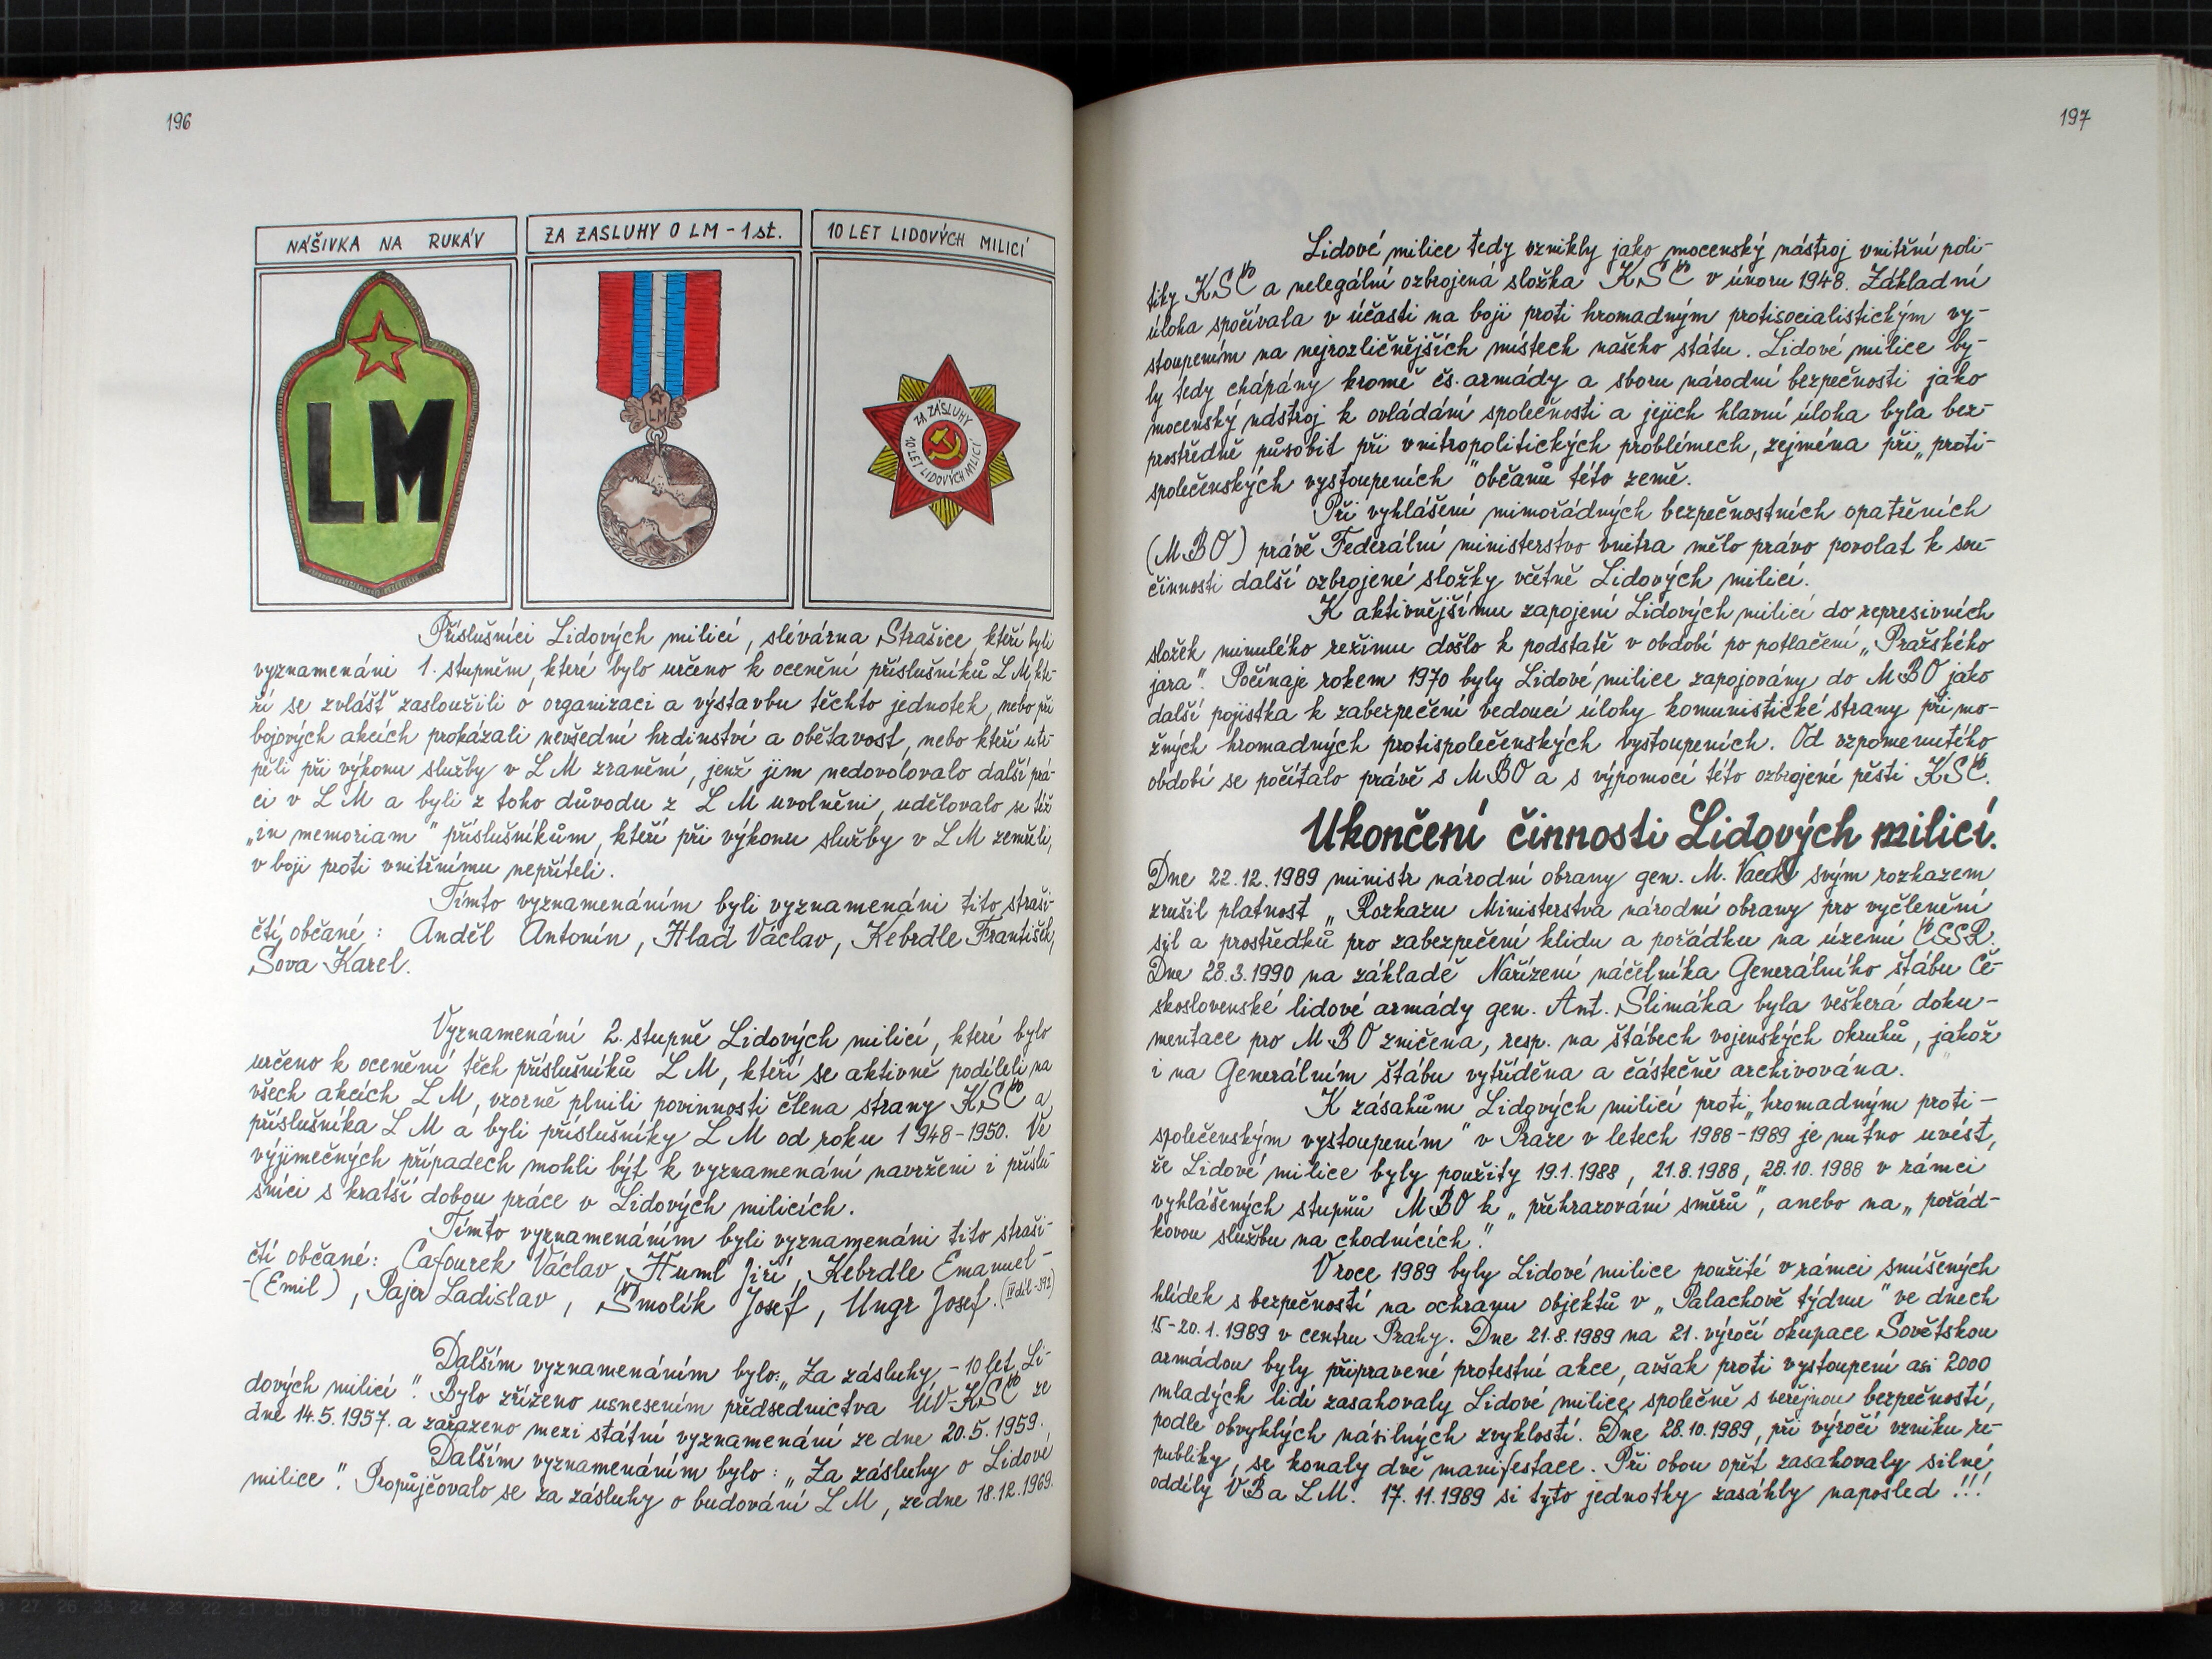 196
NÁŠIVKA NA RUKÁV
ZA ZASLUHY O LM - 1 st.
10 LET LIDOVÝCH MILICÍ
LM
LM
ZA ZÁSLUHY
10 LET LIDOVÝCH MILICÍ
Příslušníci Lidových milicí, slévárna Strašice, kteří byli
vyznamenáni 1. stupněm, které bylo určeno k ocenění příslušníků LM, kte-
ří se zvlášť zasloužili o organizaci a výstavbu těchto jednotek, nebo při
bojových akcích prokázali nevšední hrdinství a obětavost, nebo kteří utr-
pěli při výkonu služby v LM zranění, jenž jim nedovolovalo další prá-
ci v LM a byli z toho důvodu z LM uvolněni, udělovalo se též
„in memoriam" příslušníkům, kteří při výkonu služby v LM zemřeli,
v boji proti vnitřnímu nepříteli.
Tímto vyznamenáním byli vyznamenáni tito straši-
čtí občané: Anděl Antonín, Hlad Václav, Kebrdle František,
Sova Karel.
Vyznamenání 2. stupně Lidových milicí, které bylo
určeno k ocenění těch příslušníků LM, kteří se aktivně podíleli na
všech akcích LM, vzorně plnili povinnosti člena strany KSČ a
příslušníka LM a byli příslušníky LM od roku 1948-1950. Ve
výjimečných případech mohli být k vyznamenání navrženi i příslu-
šníci s kratší dobou práce v Lidových milicích.
Tímto vyznamenáním byli vyznamenáni tito straši-
čtí občané: Cafourek Václav, Huml Jiří, Kebrdle Emanuel-
-(Emil), Pajer Ladislav, Smolík Josef, Ungr Josef. (IV díl-392)
Dalším vyznamenáním bylo: „Za zásluhy - 10 let Li-
dových milicí". Bylo zřízeno usnesením předsednictva ÚV-KSČ ze
dne 14.5.1957. a zařazeno mezi státní vyznamenání ze dne 20.5.1959.
Dalším vyznamenáním bylo: „Za zásluhy o Lidové
milice". Propůjčovalo se za zásluhy o budování LM, ze dne 18.12.1969.
197
Lidové milice tedy vznikly jako mocenský nástroj vnitřní poli-
tiky KSČ a nelegální ozbrojená složka KSČ v únoru 1948. Základní
úloha spočívala v účasti na boji proti hromadným protisocialistickým vy-
stoupením na nejrozličnějších místech našeho státu. Lidové milice by-
ly tedy chápány kromě čs. armády a sboru národní bezpečnosti jako
mocenský nástroj k ovládání společnosti a jejich hlavní úloha byla bez-
prostředně působit při vnitropolitických problémech, zejména při „proti-
společenských vystoupeních" občanů této země.
Při vyhlášení mimořádných bezpečnostních opatřeních
(MBO) právě Federální ministerstvo vnitra mělo právo povolat k sou-
činnosti další ozbrojené složky včetně Lidových milicí.
K aktivnějšímu zapojení Lidových milicí do represivních
složek minulého režimu došlo k podstatě v období po potlačení „Pražského
jara". Počínaje rokem 1970 byly Lidové milice zapojovány do MBO jako
další pojistka k zabezpečení vedoucí úlohy komunistické strany při mo-
žných hromadných protispolečenských vystoupeních. Od vzpomenutého
období se počítalo právě s MBO a s výpomocí této ozbrojené pěsti KSČ.
Ukončení činnosti Lidových milicí.
Dne 22.12.1989 ministr národní obrany gen. M. Vacek svým rozkazem
zrušil platnost „Rozkazu Ministerstva národní obrany pro vyčlenění
sil a prostředků pro zabezpečení klidu a pořádku na území ČSSR.
Dne 28.3.1990 na základě Nařízení náčelníka Generálního štábu Če-
skoslovenské lidové armády gen. Ant. Slimáka byla veškerá doku-
mentace pro MBO zničena, resp. na štábech vojenských okruhů, jakož
i na Generálním štábu vytříděna a částečně archivována.
K zásahům Lidových milicí proti „hromadným proti-
společenským vystoupením" v Praze v letech 1988-1989 je nutno uvést,
že Lidové milice byly použity 19.1.1988, 21.8.1988, 28.10.1988 v rámci
vyhlášených stupňů MBO k „přehrazování směrů", anebo na „pořád-
kovou službu na chodnících".
V roce 1989 byly Lidové milice použité v rámci smíšených
hlídek s bezpečností na ochranu objektů v „Palachově týdnu" ve dnech
15-20.1.1989 v centru Prahy. Dne 21.8.1989 na 21. výročí okupace Sovětskou
armádou byly připravené protestní akce, avšak proti vystoupení asi 2000
mladých lidí zasahovaly Lidové milice společně s veřejnou bezpečností,
podle obvyklých násilných zvyklostí. Dne 28.10.1989, při výročí vzniku re-
publiky, se konaly dvě manifestace. Při obou opět zasahovaly silné
oddíly VB a LM. 17.11.1989 si tyto jednotky zasáhly naposled!!!